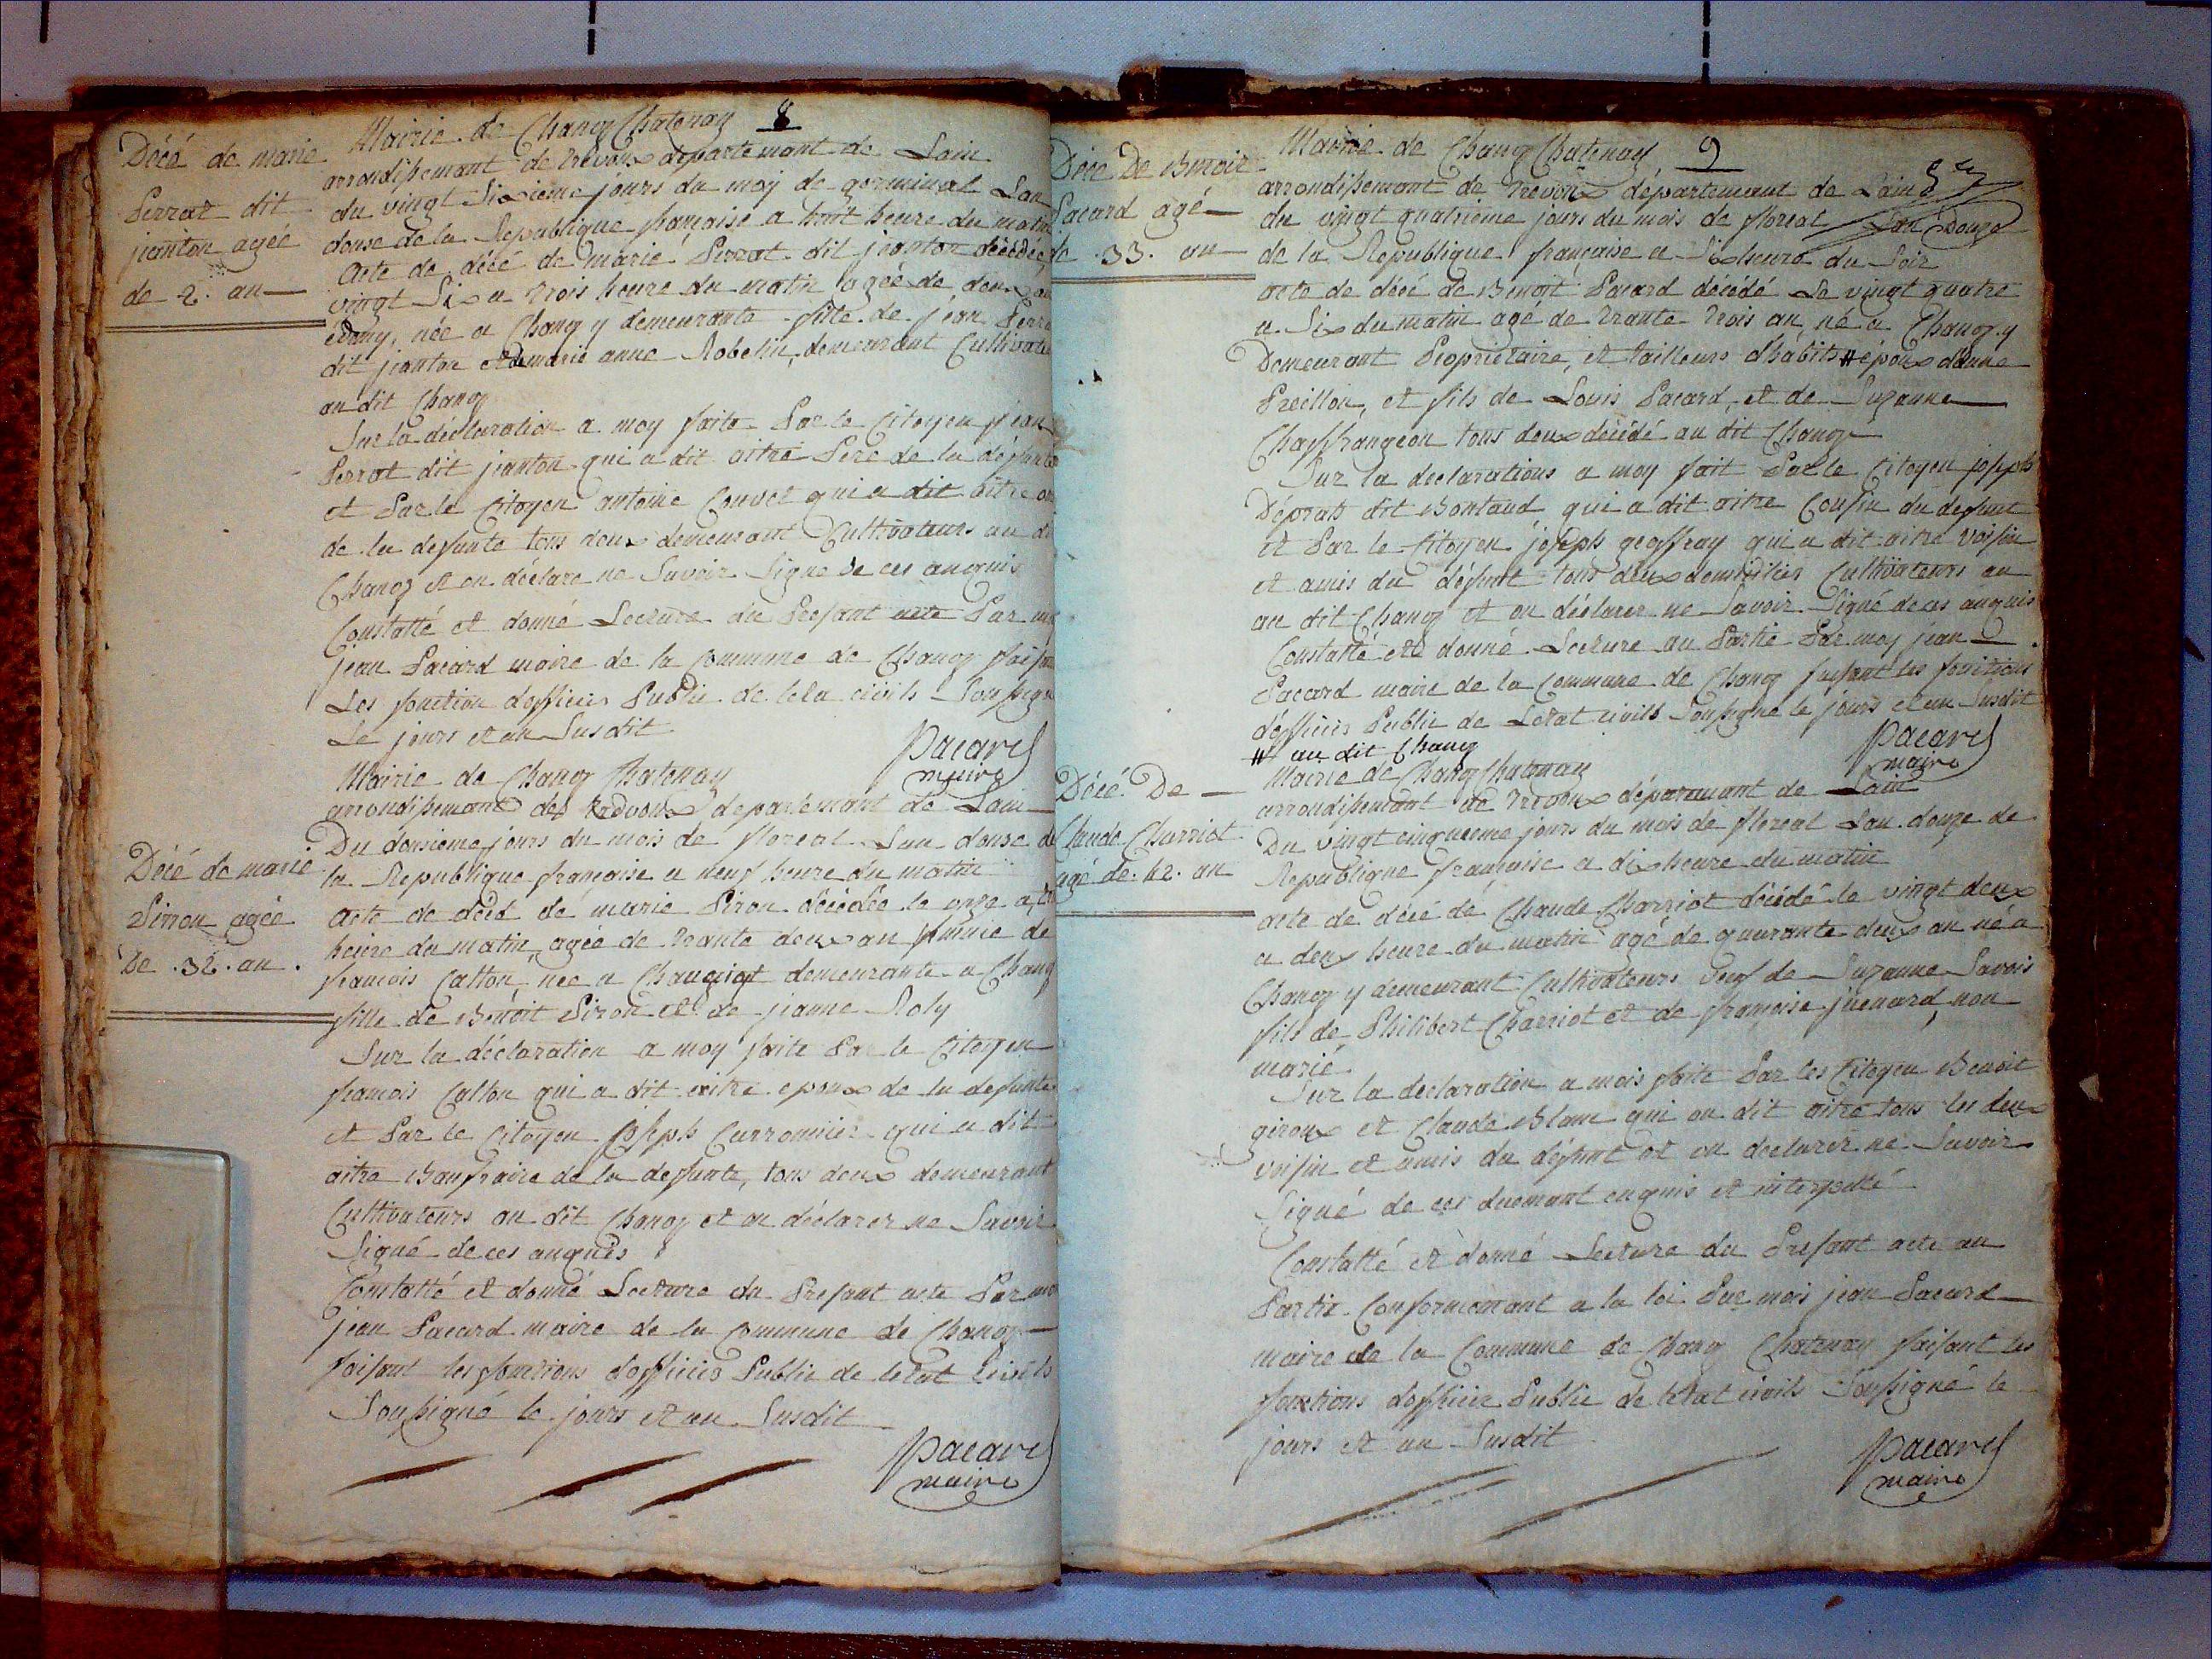 8
Décé de marie
Perrat dit
jeanton agée
de 2. an
Mairie de Chanoz Chatenay
arrondissemant de trévoux departemant de Lain
du vingt Sixieme jours du moy de germinal Lan
douse de la Republique française a huit heure du matin
Acte de décé de marie Perrat dit jeanton décédée
vingt Six a trois heure du matin agée de deux an
née a Chanoz y demeurante fille de jéan Perra
dit jeanton et de marie anne Robelin, demeurant Cultivate
au dit Chanoz
Sur la déclaration a moy faite Par le Citoyen jéan
Perrat dit jeanton qui a dit aitre Pere de la défunte
et Par le Citoyen antoine Convert qui a dit aitre
de la defunte tous deux demeurant Cultivateurs au di
Chanoz et on déclare ne Savoir Signe de ces anquis
Constatté et donné Lecture du Présant acte Par
jean Pacard maire de la Commune de Chanoz faisan
Les fonction d'officier Public de leta civils Soussigné
Le jours et an Susdit
Pacard
maire
Décé de marie
Piron agée
De .32. an.
Mairie de Chanoz Chatenay
arrondissemant de trévoux departemant de Lain
Du dousieme jours du mois de floreal Lan douse de
la Republique française a neuf heure du matin
acte de décé de marie Piron décédée le onze a
heure du matin, agée de trante deux an femme de
francois Catton, née a demeurante a Chanoz
fille de Benoit Piron et de jeanne Roly
Sur la déclaration a moy faite Par le Citoyen
francois Catton qui a dit aitre epoux de la defunte
et Par le Citoyen joseph Curronnier qui a dit
aitre Baufraire de la defunte, tous deux demeurant
Cultivateurs au dit Chanoz et on déclarer ne Savoir
Signé de ces anquis
Constatté et donné Lecture du Présant acte Par moy
jean Pacard maire de la Commune de Chanoz
faisant les fonctions d'officier Public de letat civils
Soussigné le jours et an Susdit
Pacard
maire
9
Décé De Benoit
Pacard agé
de .33. an
Mairie de Chanoz Chatenay
arrondissemant de trévoux départemant de Lain
du vingt quatrieme jours du mois de floreal Lan Douze
de la Republique française a Six heure du Soir
acte de décé de Benoit Pacard décédé le vingt quatre
a Six du matin age de trante trois an, né a Chanoz y
Demeurant Propriétaire, et tailleurs d'habits # époux danne
Préillon, et fils de Louis Pacard, et de Suzanne
Chaffrangeon tous deux décédé au dit Chanoz
Sur la declarations a moy fait Par le Citoyen joseph
Déprats dit Bontaud qui a dit aitre Cousin du defunt
et Par le Citoyen joseph geoffray qui a dit aitre voisin
et amis du défunt tous deux domicilier Cultivateurs au
au dit Chanoz et on déclarer ne Savoir Signé de ces anquis
Constatté et donné Lecture au Partie Par moy jean
Pacard maire de la Commune de Chanoz fesant les fonctions
d'officier Public de Letat civils Soussigné le jours et an Susdit
# au dit Chanoz
Pacard
maire
Décé De
Claude Charriot
agé de 42. an
Mairie de Chanoz Chatenay
arrondissemant de trévoux départemant de Lain
Du vingt cinquieme jours du mois de floreal Lan douze de
Republique française a dix heure du matin
acte de décé de Claude Charriot décédé le vingt deux
a deux heure du matin agé de quarante deux an né a
Chanoz y demeurant Cultivateurs veuf de Suzanne Savois
fils de Philibert Charriot et de françoise juenard, non
marié
Sur la declaration a mois faite Par les Citoyen Benoit
giroux et Claude Blanc qui on dit aitre tous les deux
voisin et amis du défunt et on declarer ne Savoir
Signé de ces duemant enquis et interpellé
Constatté et donné Lecture du Présant acte au
Partie Conformemant a la loi Par mois jean Pacard
maire de la Commune de Chanoz Chatenay faisant les
fonctions d'officier Public de letat civils Soussigné le
jours et an Susdit
Pacard
maire